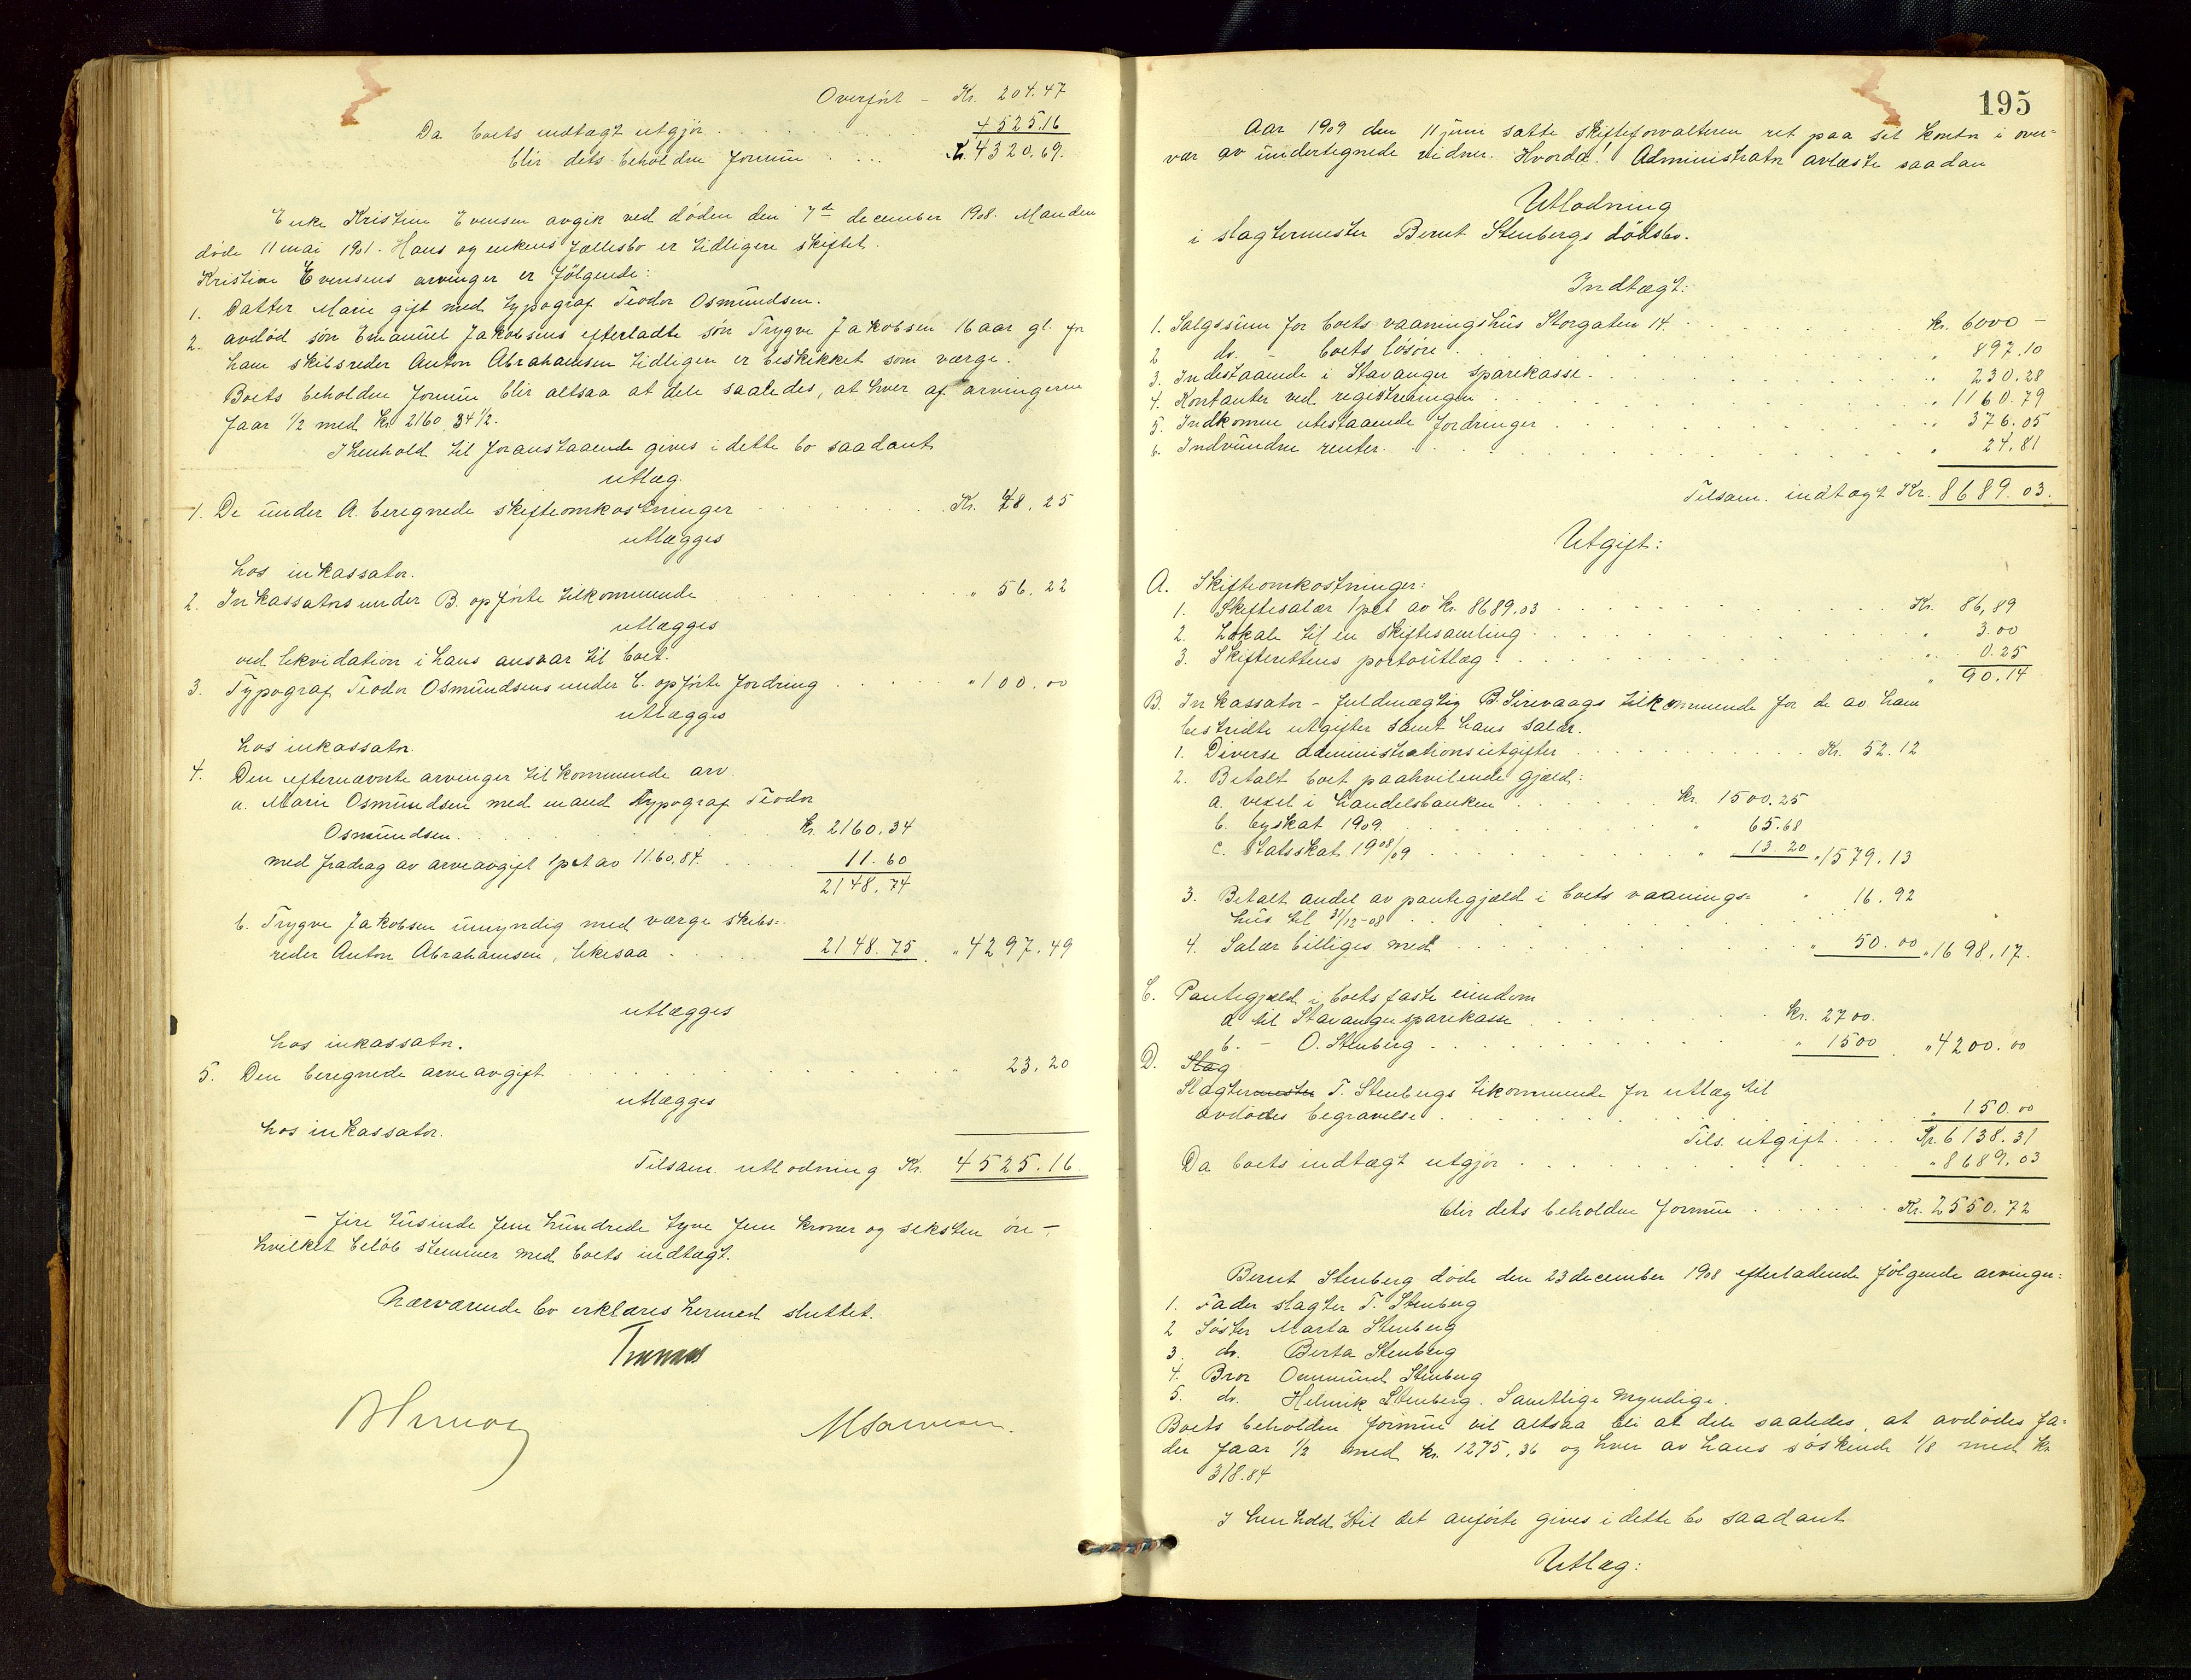 Overført - Kr. 204.47
Da boets indtægt utgjør . . . . . 4525.16
blir dets beholdne formue . . . . Kr. 4320.69.
Enke Kristine Evensen avgik ved døden den 7de december 1908. Manden
døde 11 mai 1901. Hans og enkens fællesbo er tidligere skiftet.
Kristine Evensens arvinger er følgende:
1. Datter Marie gift med typograf Teodor Osmundsen.
2. avdød søn Emanuel Jakobsens efterladte søn Trygve Jakobsen 16 aar gl. for
ham skibsreder Anton Abrahamsen tidligere er beskikket som værge.
Boets beholdne formue blir altsaa at dele saaledes, at hver af arvingerne
faar 1/2 med kr. 2160.34 1/2.
I henhold til foranstaaende gives i dette bo saadant
utlæg.
1. De under A. beregnede skifteomkostninger . . . . Kr. 48.25
utlægges
hos inkassator.
2. Inkassators under B. opførte tilkommende . . . . " 56.22
utlægges
ved likvidation i hans ansvar til boet.
3. Typograf Teodor Osmundsens under C. opførte fordring . . . . " 100.00
utlægges
hos inkassator.
4. Den efternævnte arvinger tilkommende arv.
a. Marie Osmundsen med mand typograf Teodor
Osmundsen. . . . . kr. 2160.34
med fradrag av arveavgift 1 pct av 1160.84. . . . 11.60
2148.74
b. Trygve Jakobsen umyndig med værge skibs=
reder Anton Abrahamsen, likesaa . . . . 2148.75 . " 4297.49
utlægges
hos inkassator.
5. Den beregnede arveavgift . . . . " 23.20
utlægges
hos inkassator.
Tilsam. utlodning Kr. 4525.16.
- fire tusinde fem hundrede tyve fem kroner og seksten øre -,
hvilket beløb stemmer med boets indtægt.
Nærværende bo erklæres hermed sluttet.
195
Aar 1909 den 11 juni satte skifteforvalteren ret paa sit kontor i over=
vær av undertegnede vidner. Hvorda! Administrator avlæste saadan
Utlodning
i slagtermester Bernt Stenbergs dødsbo.
Indtægt:
1. Salgssum for boets vaaningshus Storgaten 14. . . . kr. 6000 -
2 do. - boets løsøre . . . . " 897.10
3. Indestaaende i Stavanger sparekasse. . . . " 230.28
4. Kontanter ved registreringen . . . . " 1160.79
5. Indkomne utestaaende fordringer . . . . " 376.05
6. Indvundne renter. . . . " 24.81
Tilsam. indtægt Kr. 8689.03.
Utgift:
A. Skifteomkostninger:
1. Skiftesalær 1 pct av kr. 8689.03 . . . . Kr. 86,89
2. Lokale til en skiftesamling . . . . " 3.00
3. Skifterettens portoutlæg . . . . " 0.25
" 90.14
B. Inkassator - fuldmægtig B. Sirevaags tilkommende for de av ham
bestridte utgifter samt hans salær.
1. Diverse administrationsutgifter . . . . Kr. 52.12
2. Betalt boet paahvilende gjæld:
a. vexel i handelsbanken . . . . kr. 1500.25
b. byskat 1909 . . . . " 65.68
c. Statsskat 1908/09 . . . . " 13.20 " 1579.13
3. Betalt andel av pantegjæld i boets vaanings= " 16.92
hus til 31/12-08 . . . . "
4. Salær billiges med . . . . " 50.00 " 1698.17.
C. Pantegjæld i boets faste eiendom
a til Stavanger sparekasse . . . . kr. 2700.
b. - O. Stenberg . . . . " 1500 " 4200.00
D. Slag
Slagtermester T. Stenbergs tilkommende for utlæg til
avdødes begravelse . . . . " 150.00
Tils. utgift . . . . Kr. 6138.31
Da boets indtægt utgjør . . . . " 8689.03
blir dets beholdne formue . . . . Kr. 2550.72
Bernt Stenberg døde den 23 december 1908 efterladende følgende arvinger:
1. Fader slagter T. Stenberg
2 Søster Marta Stenberg
3. do. Berta Stenberg
4. Bror Ommund Stenberg
5. do. Helmik Stenberg. Samtlige myndige.
Boets beholdne formue vil altsaa bli at dele saaledes, at avdødes fa=
der faar 1/2 med kr. 1275.36 og hver av hans søskende 1/8 med kr.
318.84
I henhold til det anførte gives i dette bo saadant
Utlæg: